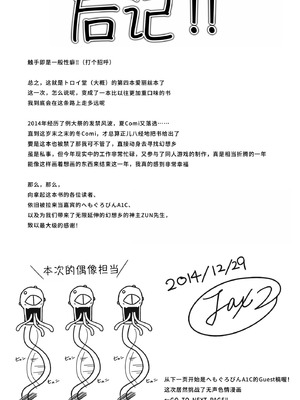 后记!!
触手即是一般性癖!!（打个招呼）
总之，这就是トロイ堂（大概）的第四本爱丽丝本了
这一次，怎么说呢，变成了一本比以往更加重口味的书
我到底会在这条路上走多远呢
2014年经历了例大祭的发禁风波，夏Comi又落选……
直到这岁末之末的冬Comi，才总算正儿八经地把书给出了
要是这本也被禁了那我可不管了，直接动身去寻找幻想乡
虽是私事，但今年现实中的工作非常忙碌，又参与了同人游戏的制作，真是相当折腾的一年
能像这样画着想画的东西来结束这一年，我真的感到非常幸福
那么，那么。
向拿起这本书的各位读者、
依旧被拉来当嘉宾的へもぐろびんA1C、
以及为我们带来了无限延伸的幻想乡的神主ZUN先生，
致以最大级的感谢！
本次的偶像担当
2014/12/29
ビュン ビュン ビュン ビュン
从下一页开始是へもぐろびんA1C的Guest稿喔！
这次居然挑战了无声色情漫画
←GO TO NEXT PAGE!!